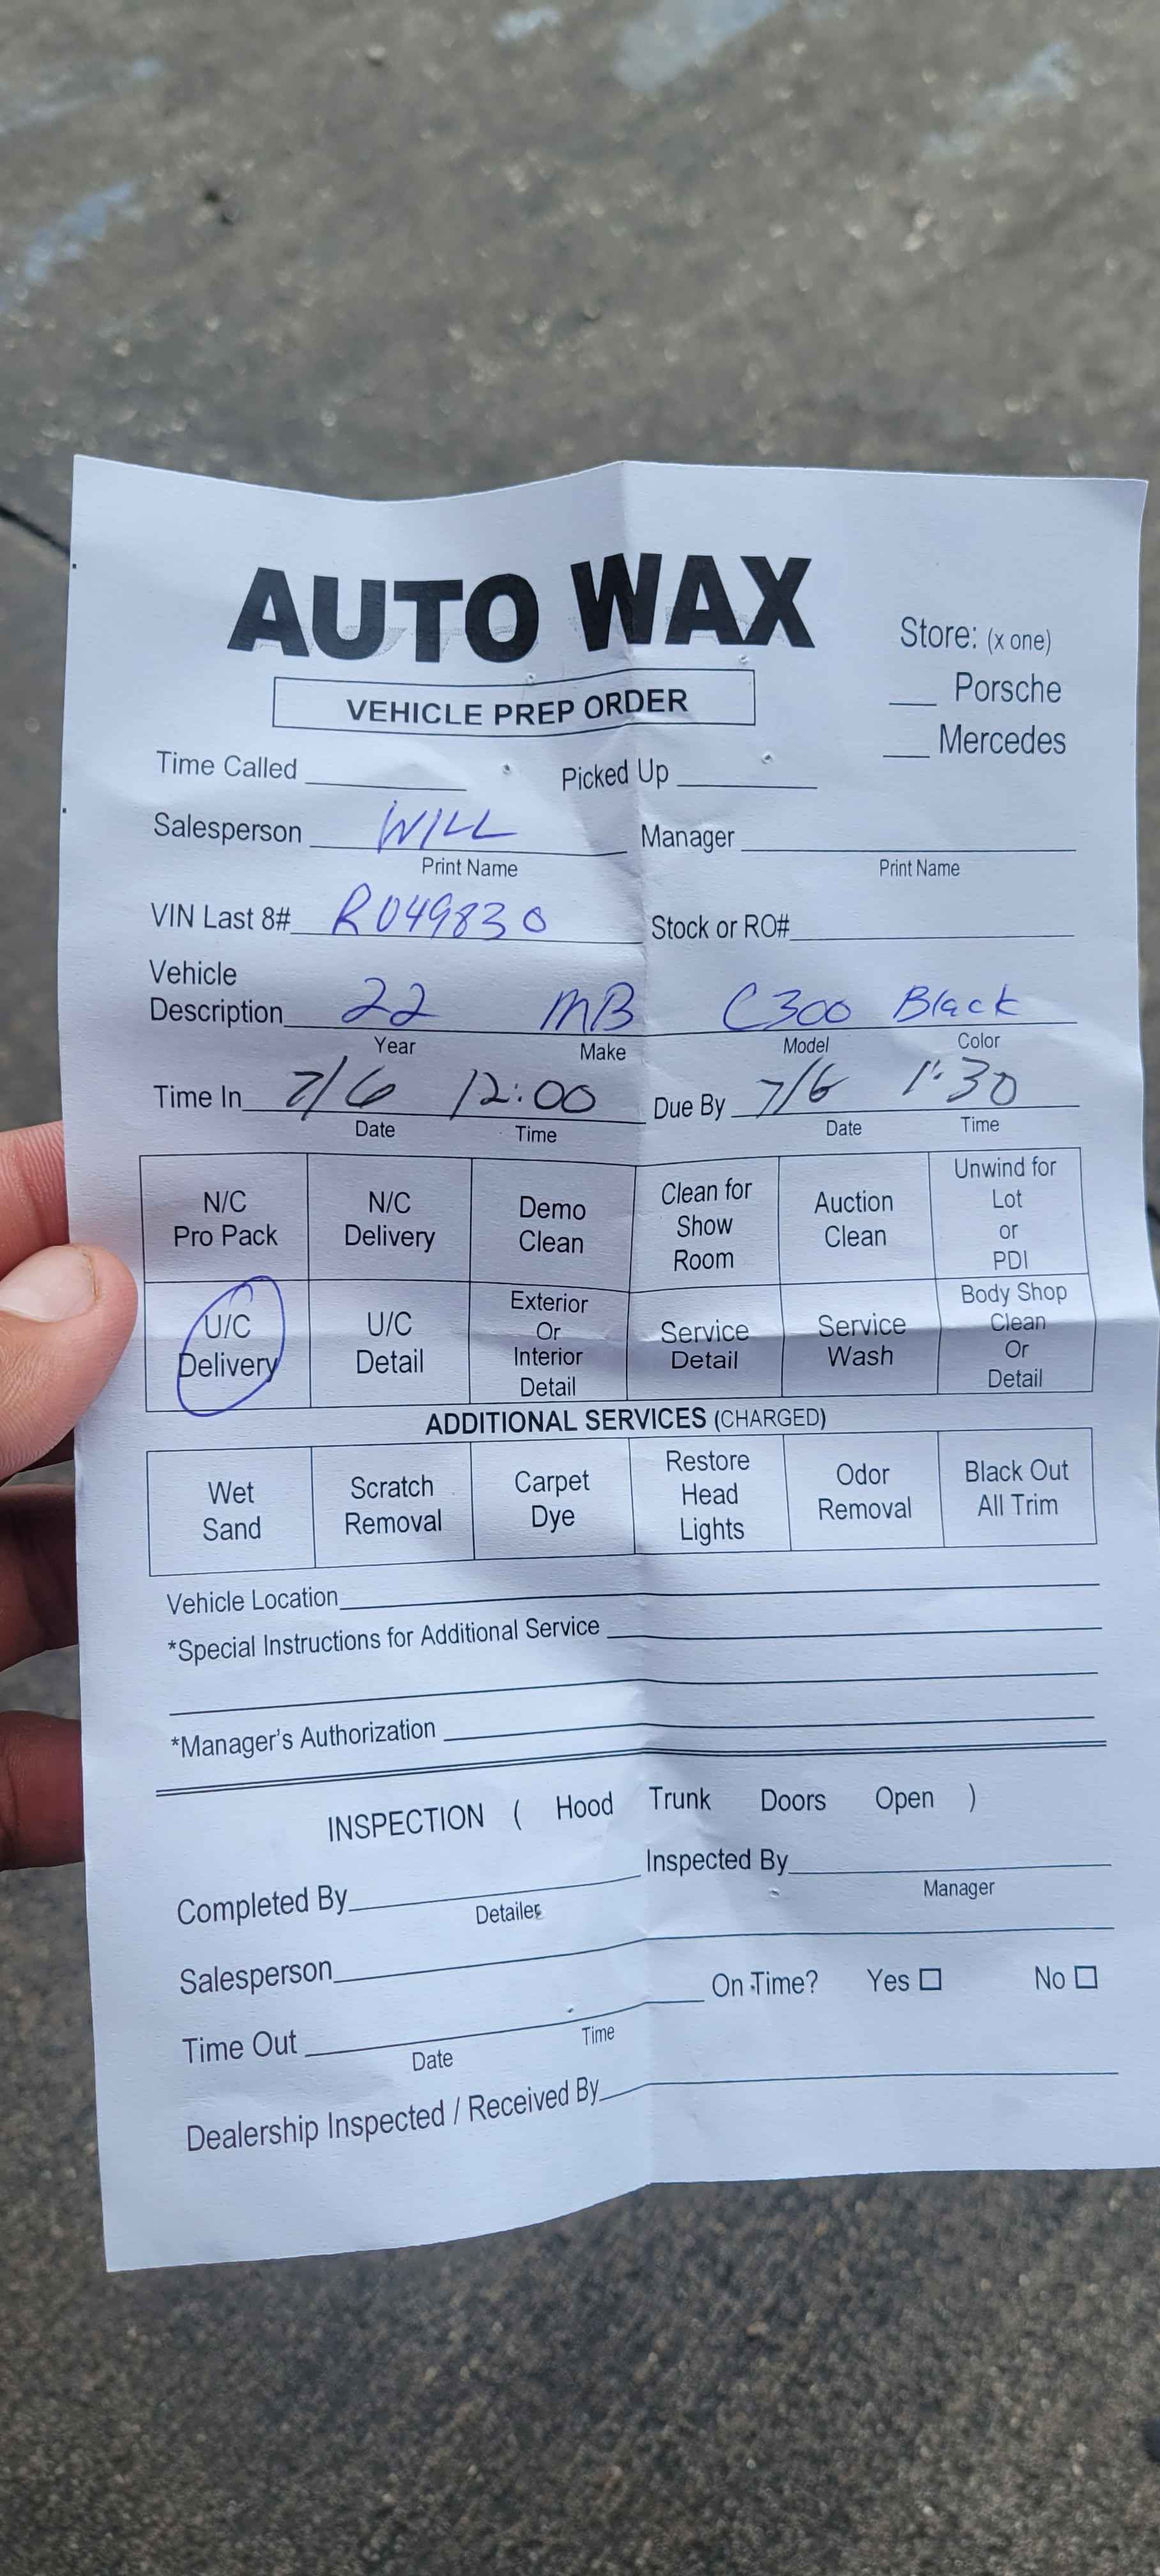 AUTO WAX
VEHICLE PREP ORDER
Store: (x one)
___ Porsche
___ Mercedes
Time Called ___ Picked Up ___
Salesperson WILL Manager ___
Print Name Print Name
VIN Last 8# R049830 Stock or RO# ___
Vehicle
Description 22 MB C300 Black
Year Make Model Color
Time In 7/6 12:00 Due By 7/6 1:30
Date Time Date Time
N/C Pro Pack N/C Delivery Demo Clean Clean for Show Room Auction Clean Unwind for Lot or PDI
U/C Delivery U/C Detail Exterior Or Interior Detail Service Detail Service Wash Body Shop Clean Or Detail
ADDITIONAL SERVICES (CHARGED)
Wet Sand Scratch Removal Carpet Dye Restore Head Lights Odor Removal Black Out All Trim
Vehicle Location ___
*Special Instructions for Additional Service ___
*Manager's Authorization ___
INSPECTION ( Hood Trunk Doors Open )
Completed By ___ Inspected By ___
Detailer Manager
Salesperson ___
Time Out ___ On Time? Yes ☐ No ☐
Date Time
Dealership Inspected / Received By ___